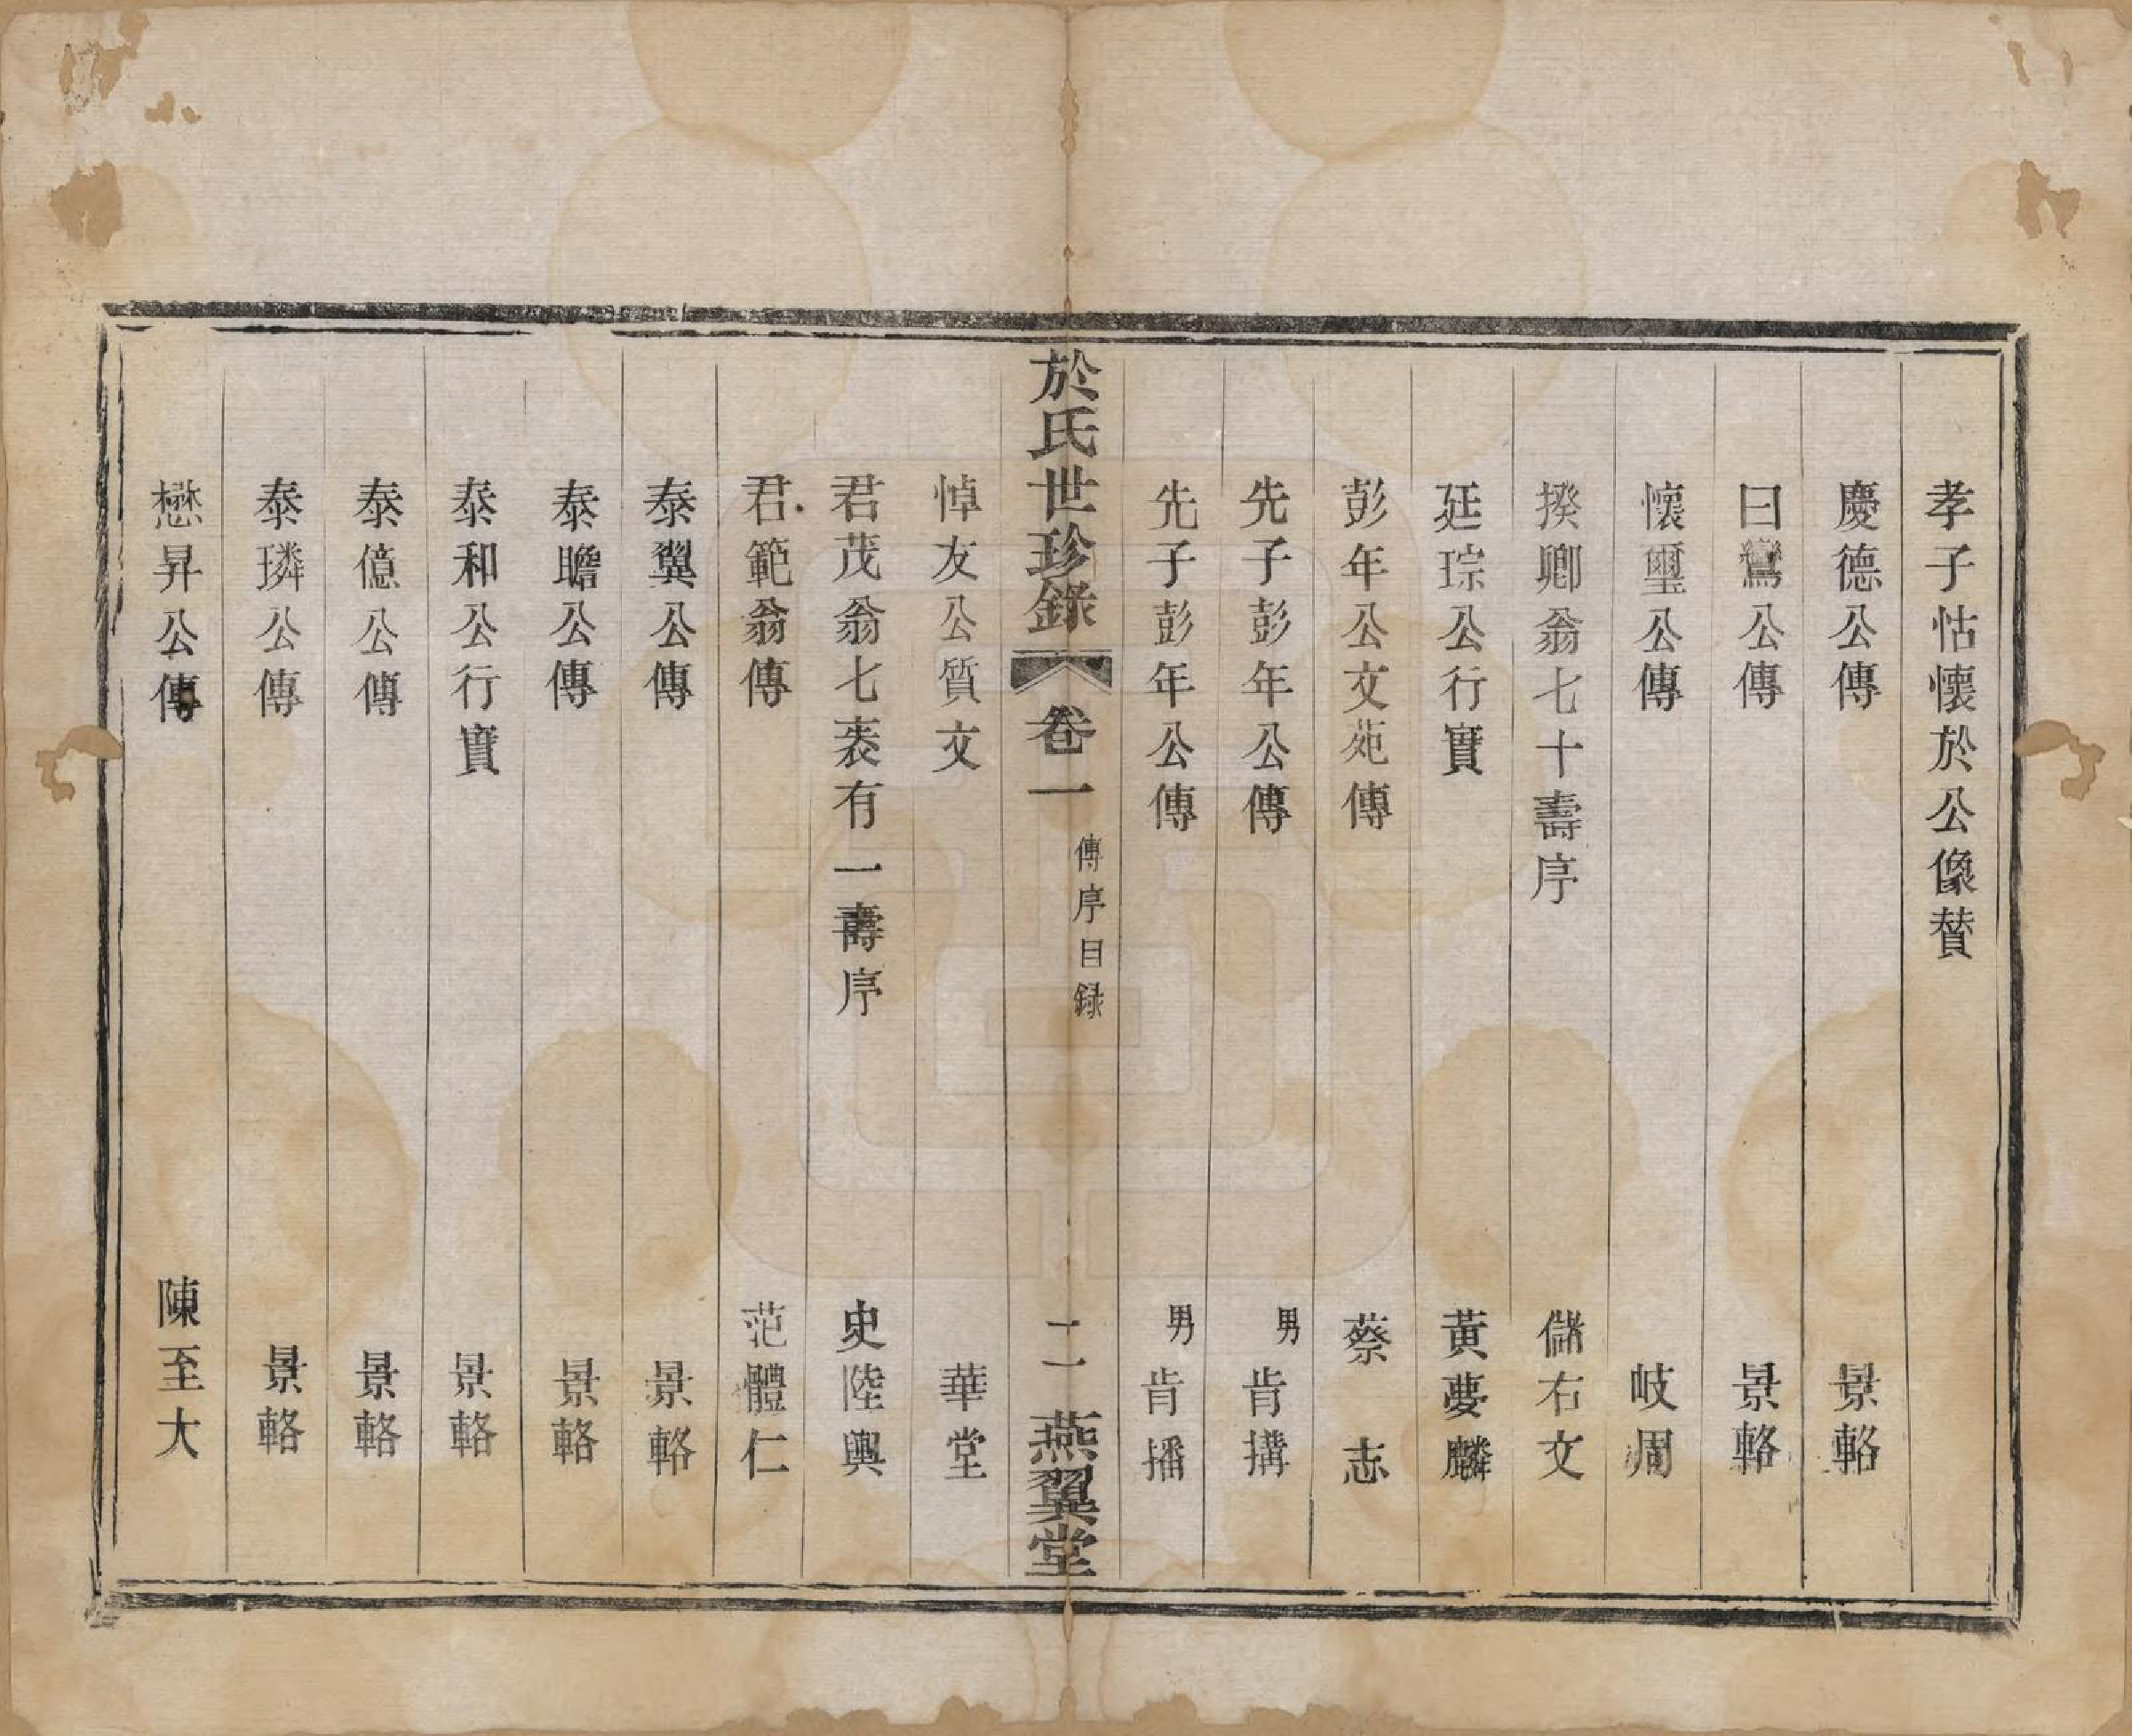 孝子怙懷於公像賛
慶德公傳 景輅
曰鸞公傳 景輅
懷璽公傳 岐周
揆卿翁七十壽序 儲右文
廷琮公行實 黃夢麟
彭年公文苑傳 蔡志
先子彭年公傳 男肯搆
先子彭年公傳 男肯播
於氏世珍錄 卷一 傳序目録 二 燕翼堂
悼友公質文 華堂
君茂翁七袠有一壽序 史陸輿
君範翁傳 范體仁
泰翼公傳 景輅
泰瞻公傳 景輅
泰和公行實 景輅
泰億公傳 景輅
泰璘公傳 景輅
懋昇公傳 陳至大